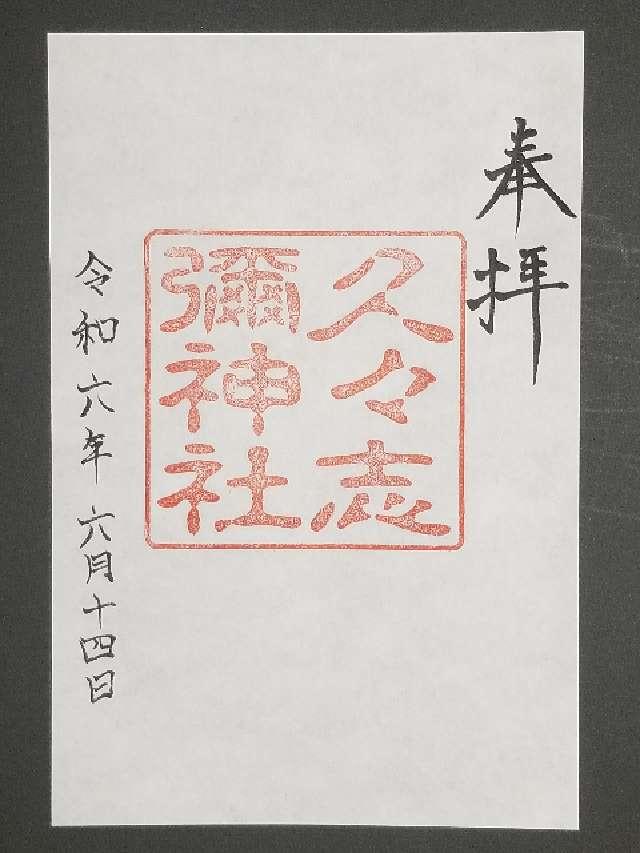 奉拝
久々志
彌神社
令和六年六月十四日